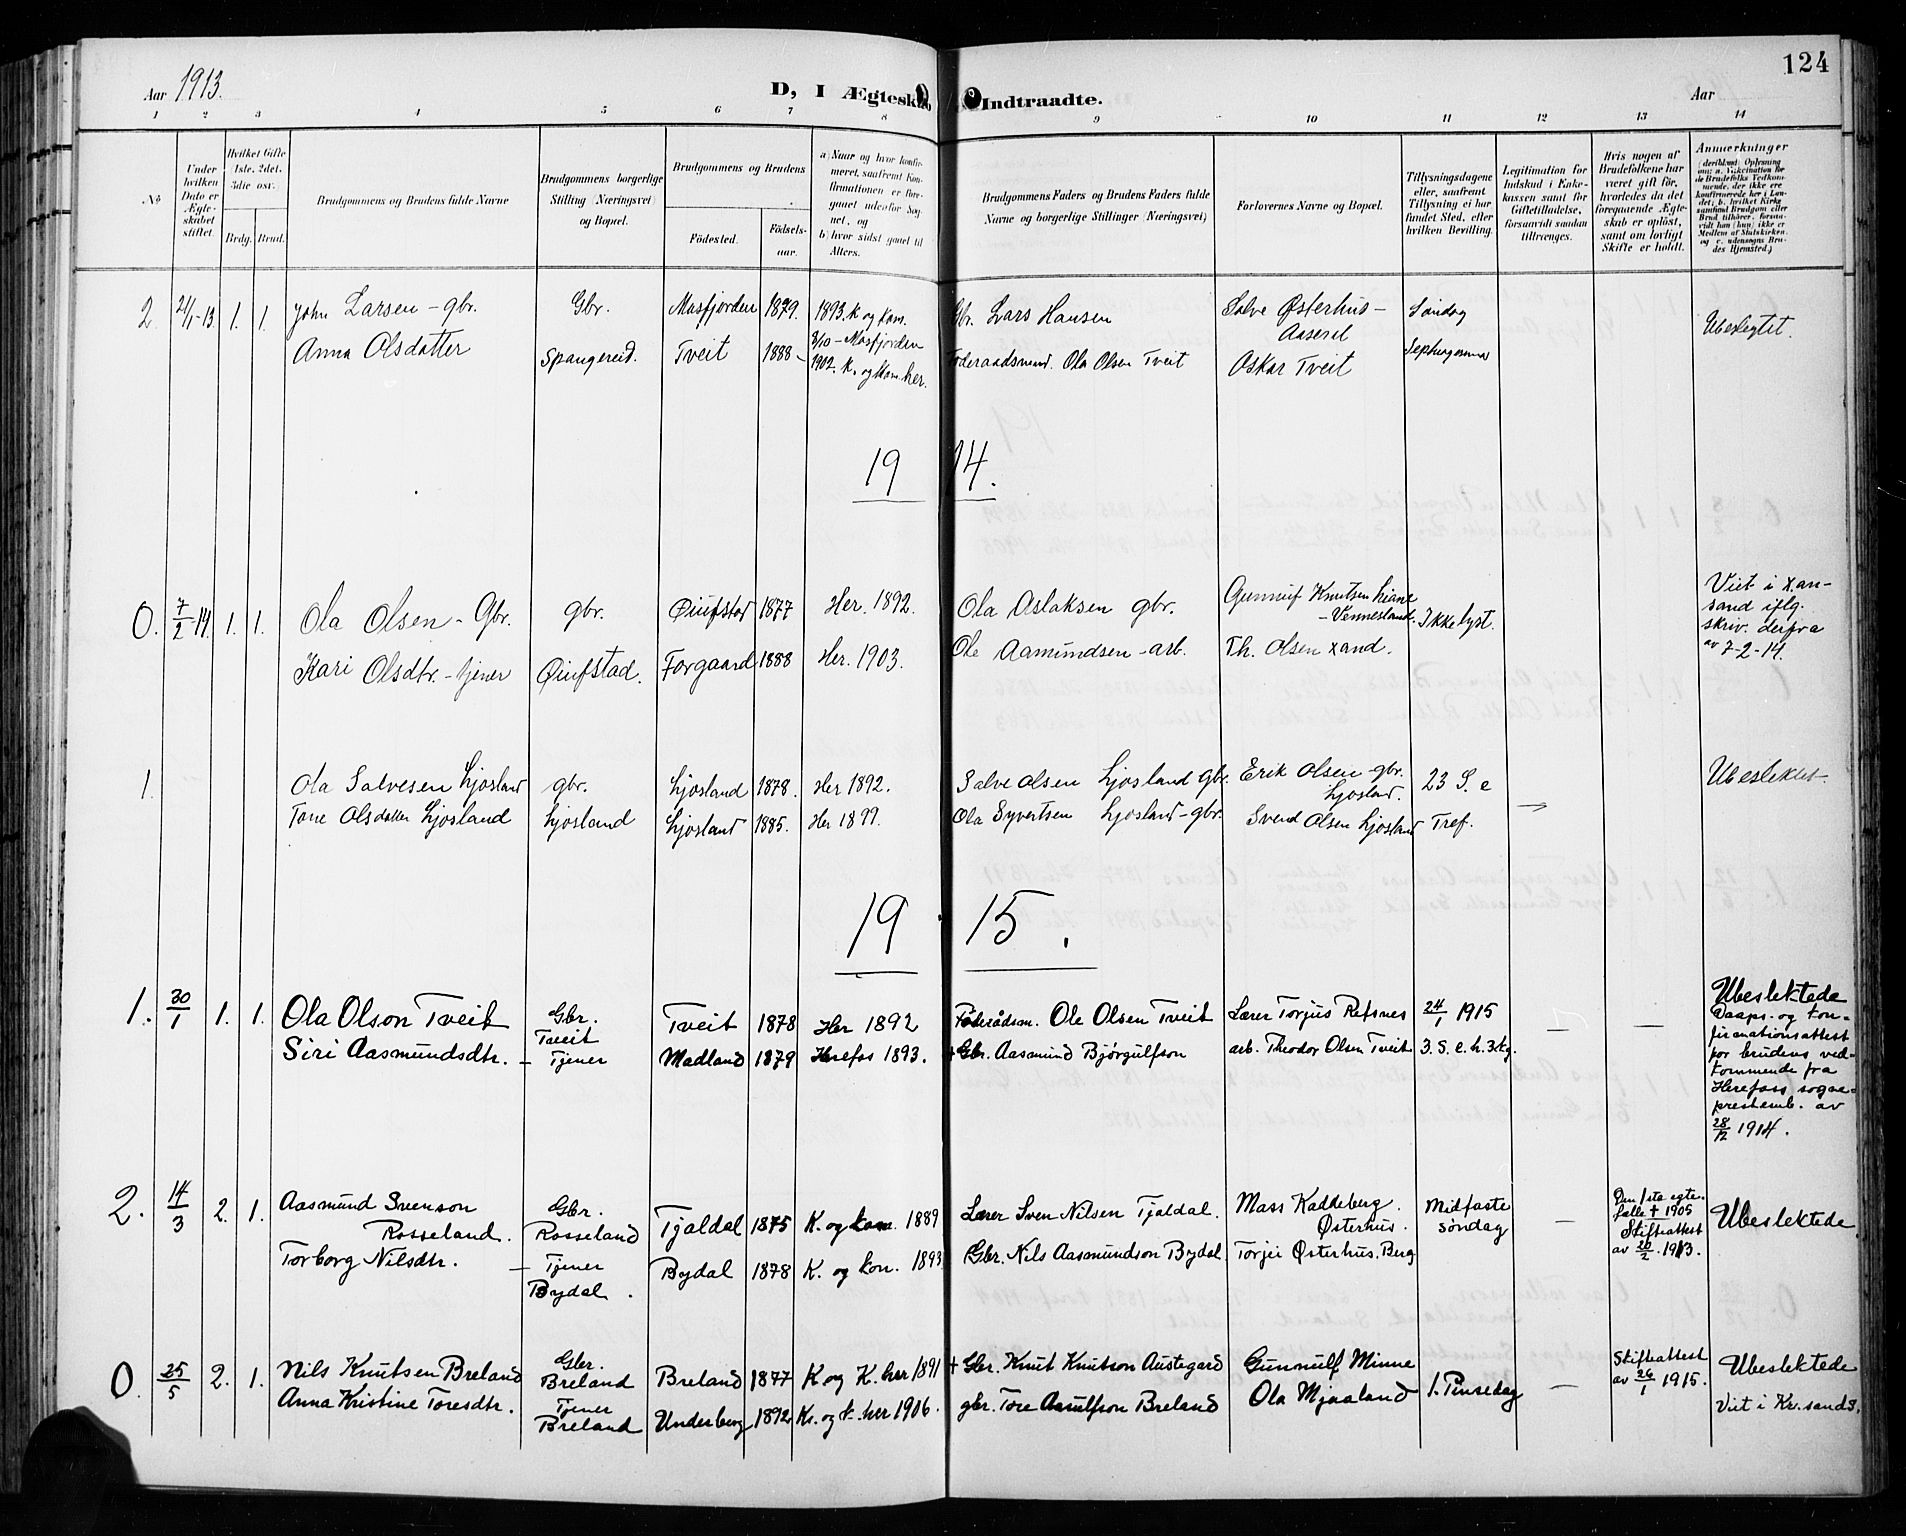 124
Aar 1913.
D, I Ægteskab Indtraadte.
Aar
1 2 3 4 5 6 7 8 9 10 11 12 13 14
No
Under hvilken Dato er Ægteskabet stiftet.
Hvilket Gifte 1ste, 2det, 3die osv.
Brdg. Brud.
Brudgommens og Brudens fulde Navne
Brudgommens borgerlige Stilling (Næringsvei) og Bopæl.
Brudgommens og Brudens
Fødested.
Fødselsaar.
a) Naar og hvor konfirmeret, saafremt Konfirmationen er foregaaet udenfor Sognet, og
b) hvor sidst gaaet til Alters.
Brudgommens Faders og Brudens Faders fulde Navne og borgerlige Stillinger (Næringsvei)
Forlovernes Navne og Bopæl.
Tillysningsdagene eller, saafremt Tillysning ei har fundet Sted, efter hvilken Bevilling.
Legitimation for Indskud i Enkekassen samt for Giftetilladelse, forsaavidt saadan tiltrænges.
Hvis nogen af Brudefolkene har været gift før, hvorledes da det foregaaende Ægteskab er opløst, samt om lovligt Skifte er holdt.
Anmerkninger
2. 21/1-13. 1. 1. John Larsen - gbr. Gbr. Masfjorden 1879. 1893. K og kom. Gbr. Lars Hansen Salve Østerhus - Søndag Ubeslegtet.
3/10 - Masfjorden Aaseral
Anna Olsdatter Spangereid. Tveit 1888 - 1902. K. og kom. her. Foderaadsmand. Ola Olsen Tveit Oskar Tveit
19 14.
0. 7/2-14. 1. 1. Ola Olsen - Gbr. gbr. Øiufstad 1877 Her. 1892. Ola Aslaksen gbr. Gunnuf Knutsen Liane - Vennesland. Ikke lyst. Viet i Xansand iflg. skriv. derfra av 7-2-14.
Kari Olsdtr. - tjener Øiufstad. Forgaard 1888 Her. 1903. Ole Aamundsen - arb. Th. Olsen Xand.
1. Ola Salvesen Ljosland gbr. Ljosland 1878. Her 1892. Salve Olsen Ljosland gbr. Erik Olsen - gbr. Ljosland. 23 S. e Ubeslektet
Tone Olsdatter Ljosland Ljosland Ljosland 1885. Her 1899. Ola Syvertsen Ljosland - gbr. Svend Olsen Ljosland Tref.
19 15.
1. 30/1 1. 1. Ola Olson Tveit Gbr. Tveit Tveit 1878 Her 1892 Føderådsm. Ole Olsen Tveit Lærer Torjus Refsnes 24/1 1915 Ubeslektede
Siri Aasmundsdtr. - Tjener Madland 1879 Herefos 1893. + Gbr. Aasmund Bjórgulfson arb. Theodor Olsen Tveit 3. S. e. h. 3kg.
Daaps- og konfirmationsattest for brudens vedkommende fra Herefoss sogneprestemb. av 28/12 1914.
2. 14/3 2. 1. Aasmund Svenson Rosseland. Gbr. Rosseland Tjaldal 1875 K. og kom. 1889 Lærer Sven Nilsen Tjaldal. Mass Kaddeberg Østerhus. Midfaste søndag Den 1ste egtefelle + 1905 Skifteattest av 20/2 1913. Ubeslektede
Torborg Nilsdtr. - Tjener Bydal. Bydal 1878 K. og kon. 1893 Gbr. Nils Aasmundson Bydal Torjei Østerhus. Berg
0. 25/5 2. 1. Nils Knutsen Breland Gbr. Breland Breland 1877 K og K. her 1891 + Gbr. Knut Knutson Austegard Gunnulf Minne 1. Pinsedag Skifteattest av 26/1 1915. Ubeslektede
Anna Kristine Toresdtr. Tjener Breland Underberg 1892 K. og k. her 1906. gbr. Tore Asulfson Breland Ola Mjaaland Viet i Kr.sands.